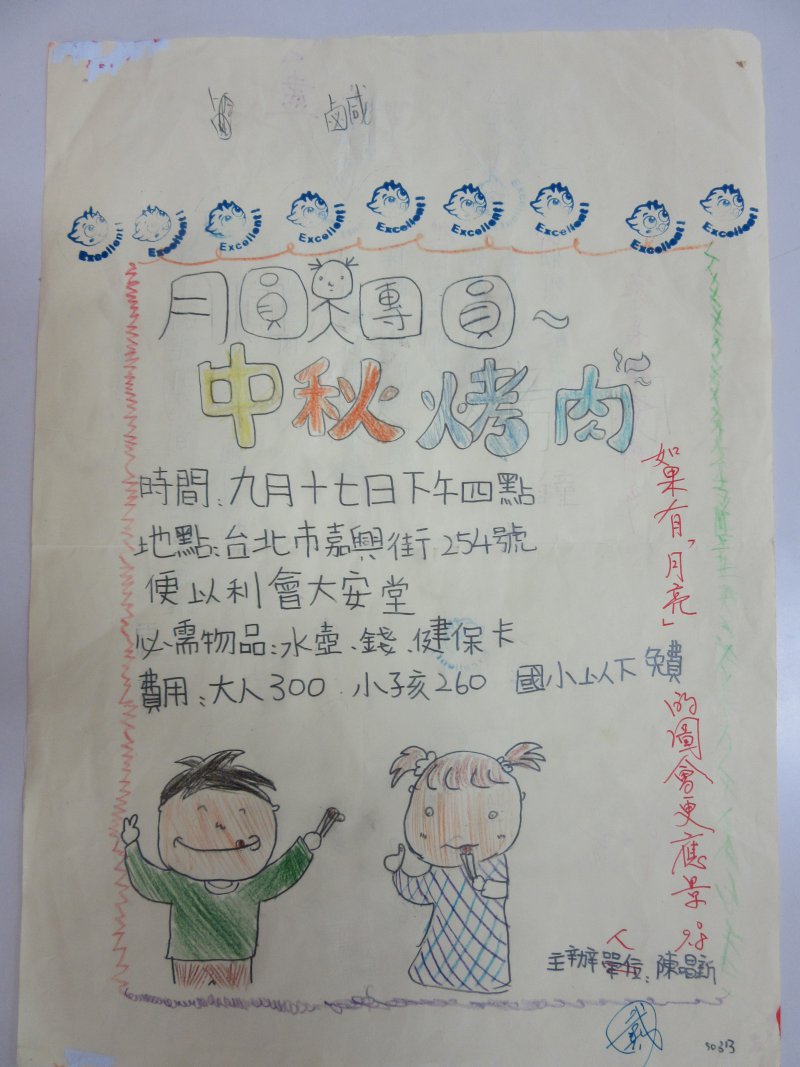 鹹
Excellent!
Excellent!
Excellent!
Excellent!
Excellent!
Excellent!
Excellent!
Excellent!
Excellent!
月員人團員～
中秋烤肉
時間：九月十七日下午四點
地點：台北市嘉興街254號
便以利會大安堂
必需物品：水壺、錢、健保卡
費用：大人300 小孩260 國小以下免費
如果有「月亮」的圖會更應景
9.8
人
主辦單位：陳昌新
戴
50313